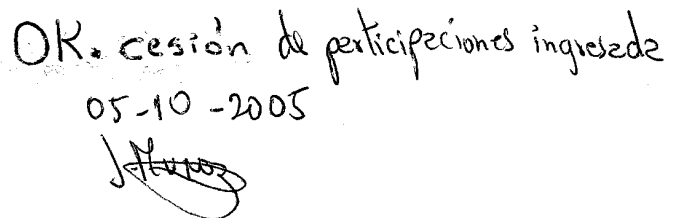 OK. cesión de participaciones ingresada
05-10-2005
J. Muñoz